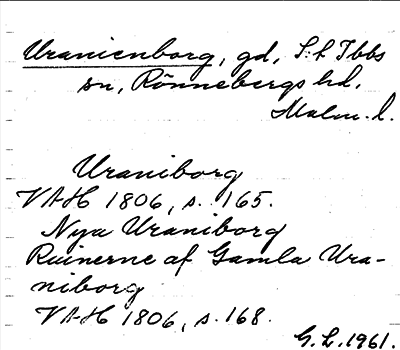 Uranienborg, gd, S:t Ibbs
sn, Rönnebergs hd,
Malm. l.
Uraniborg
VAH 1806, s. 165.
Nya Uraniborg
Ruinerne af Gamla Ura-
niborg
VAH 1806, s. 168.
G. L. 1961.